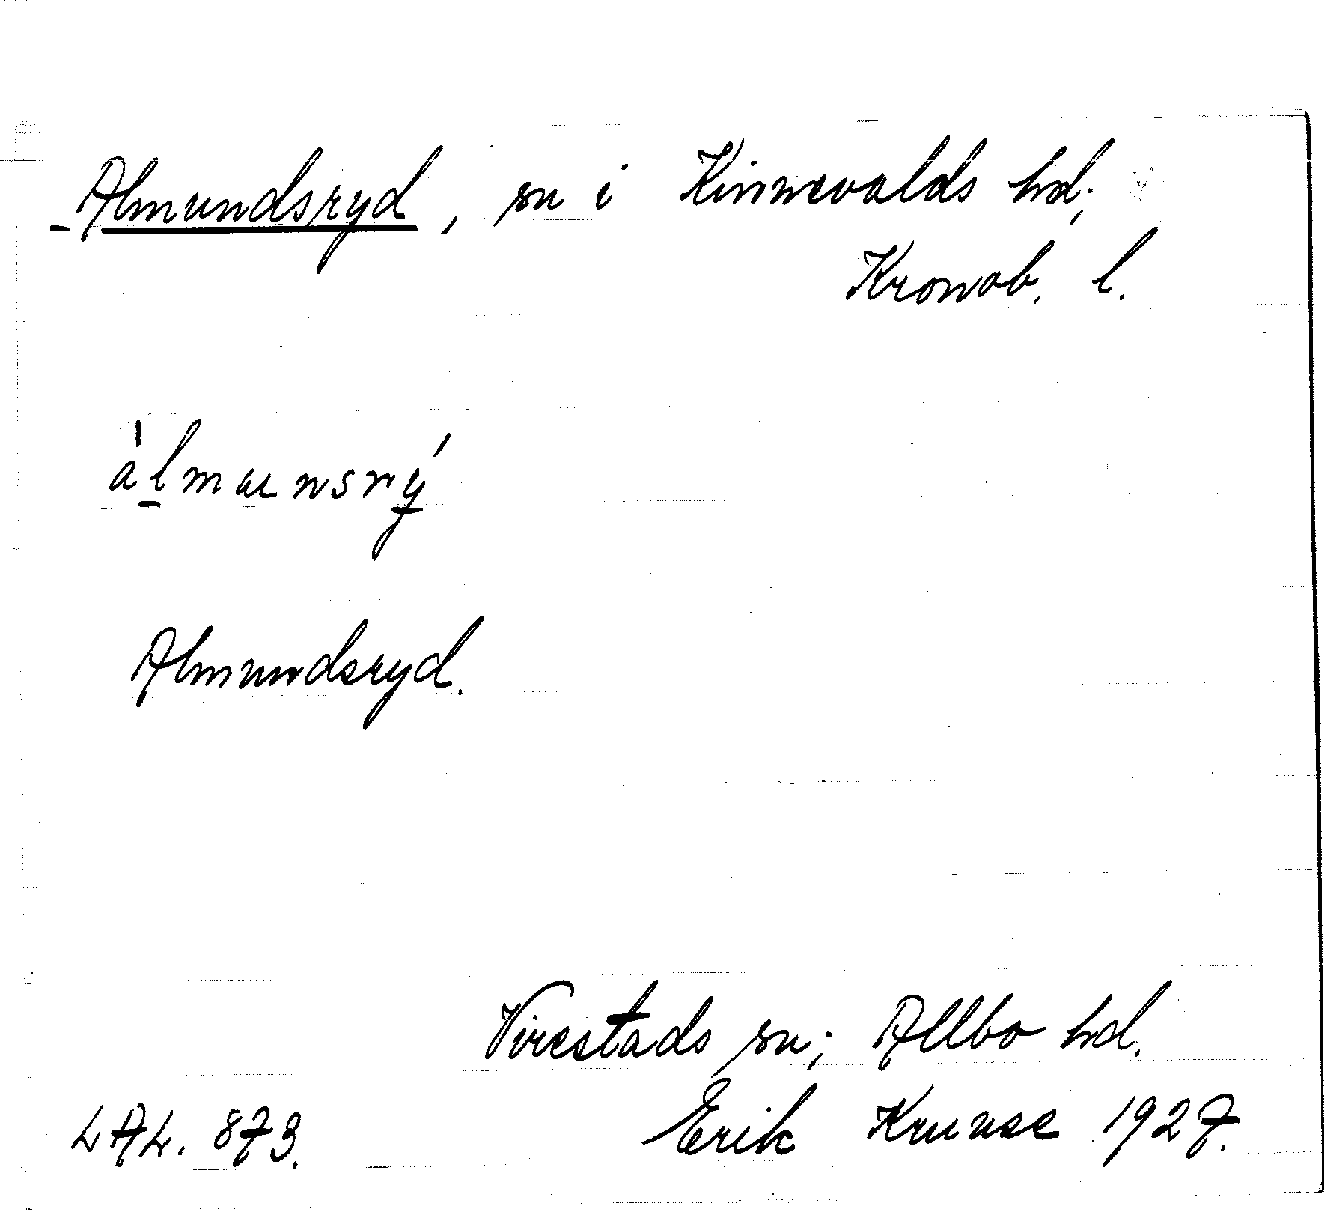 Almundsryd, sn i Kinnevalds hd;
Kronob. l.
álmunsrý
Almundsryd.
Virestads sn; Allbo hd.
LAL. 873. Erik Kruuse 1927.